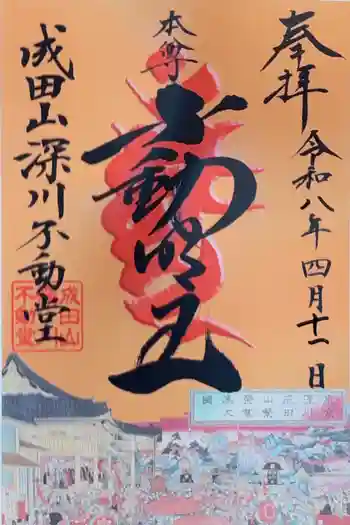 奉拝
令和八年四月十一日
本尊
不動明王
成田山深川不動堂
成田山
不動堂